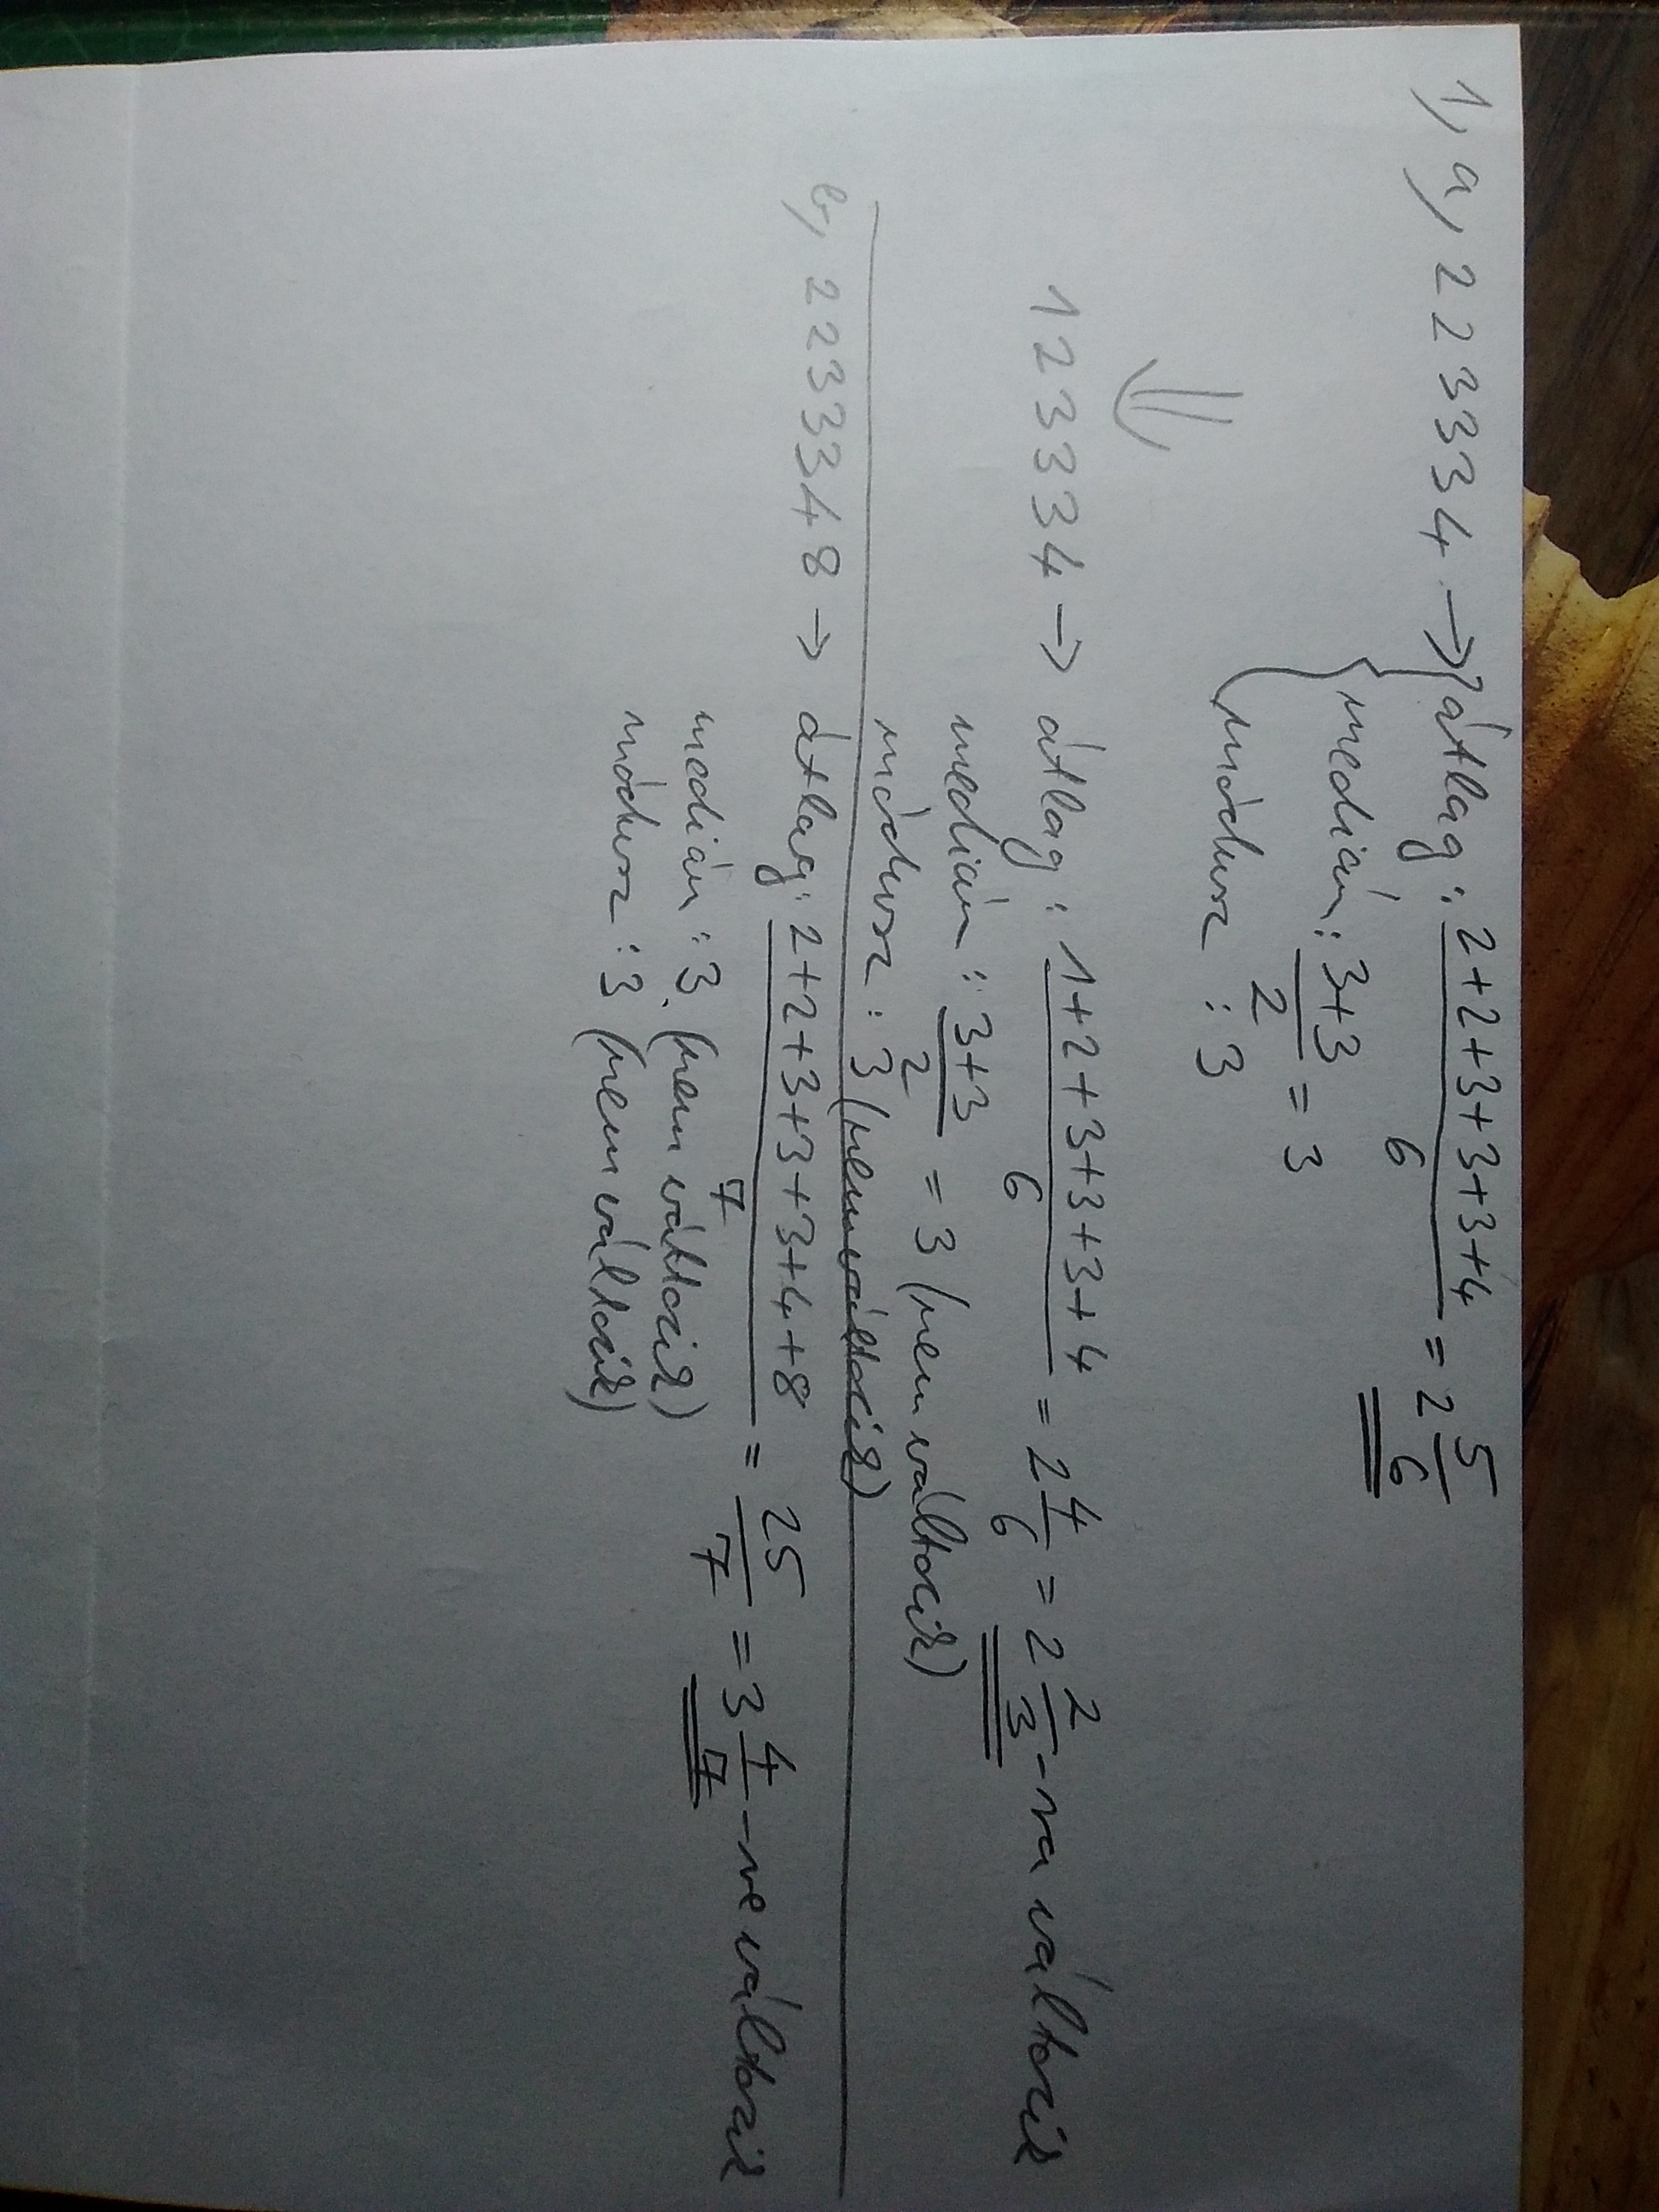 1, a, 2 2 3 3 3 4 → átlag: (2+2+3+3+3+4)/6 = 2 5/6
medián: (3+3)/2 = 3
módusz: 3
⇓
1 2 3 3 3 4 → átlag: (1+2+3+3+3+4)/6 = 2 4/6 = 2 2/3 -ra változik
medián: (3+3)/2 = 3 (nem változik)
módusz: 3 (nem változik)
b, 2 2 3 3 3 4 8 → átlag: (2+2+3+3+3+4+8)/7 = 25/7 = 3 4/7 -re változik
medián: 3 (nem változik)
módusz: 3 (nem változik)